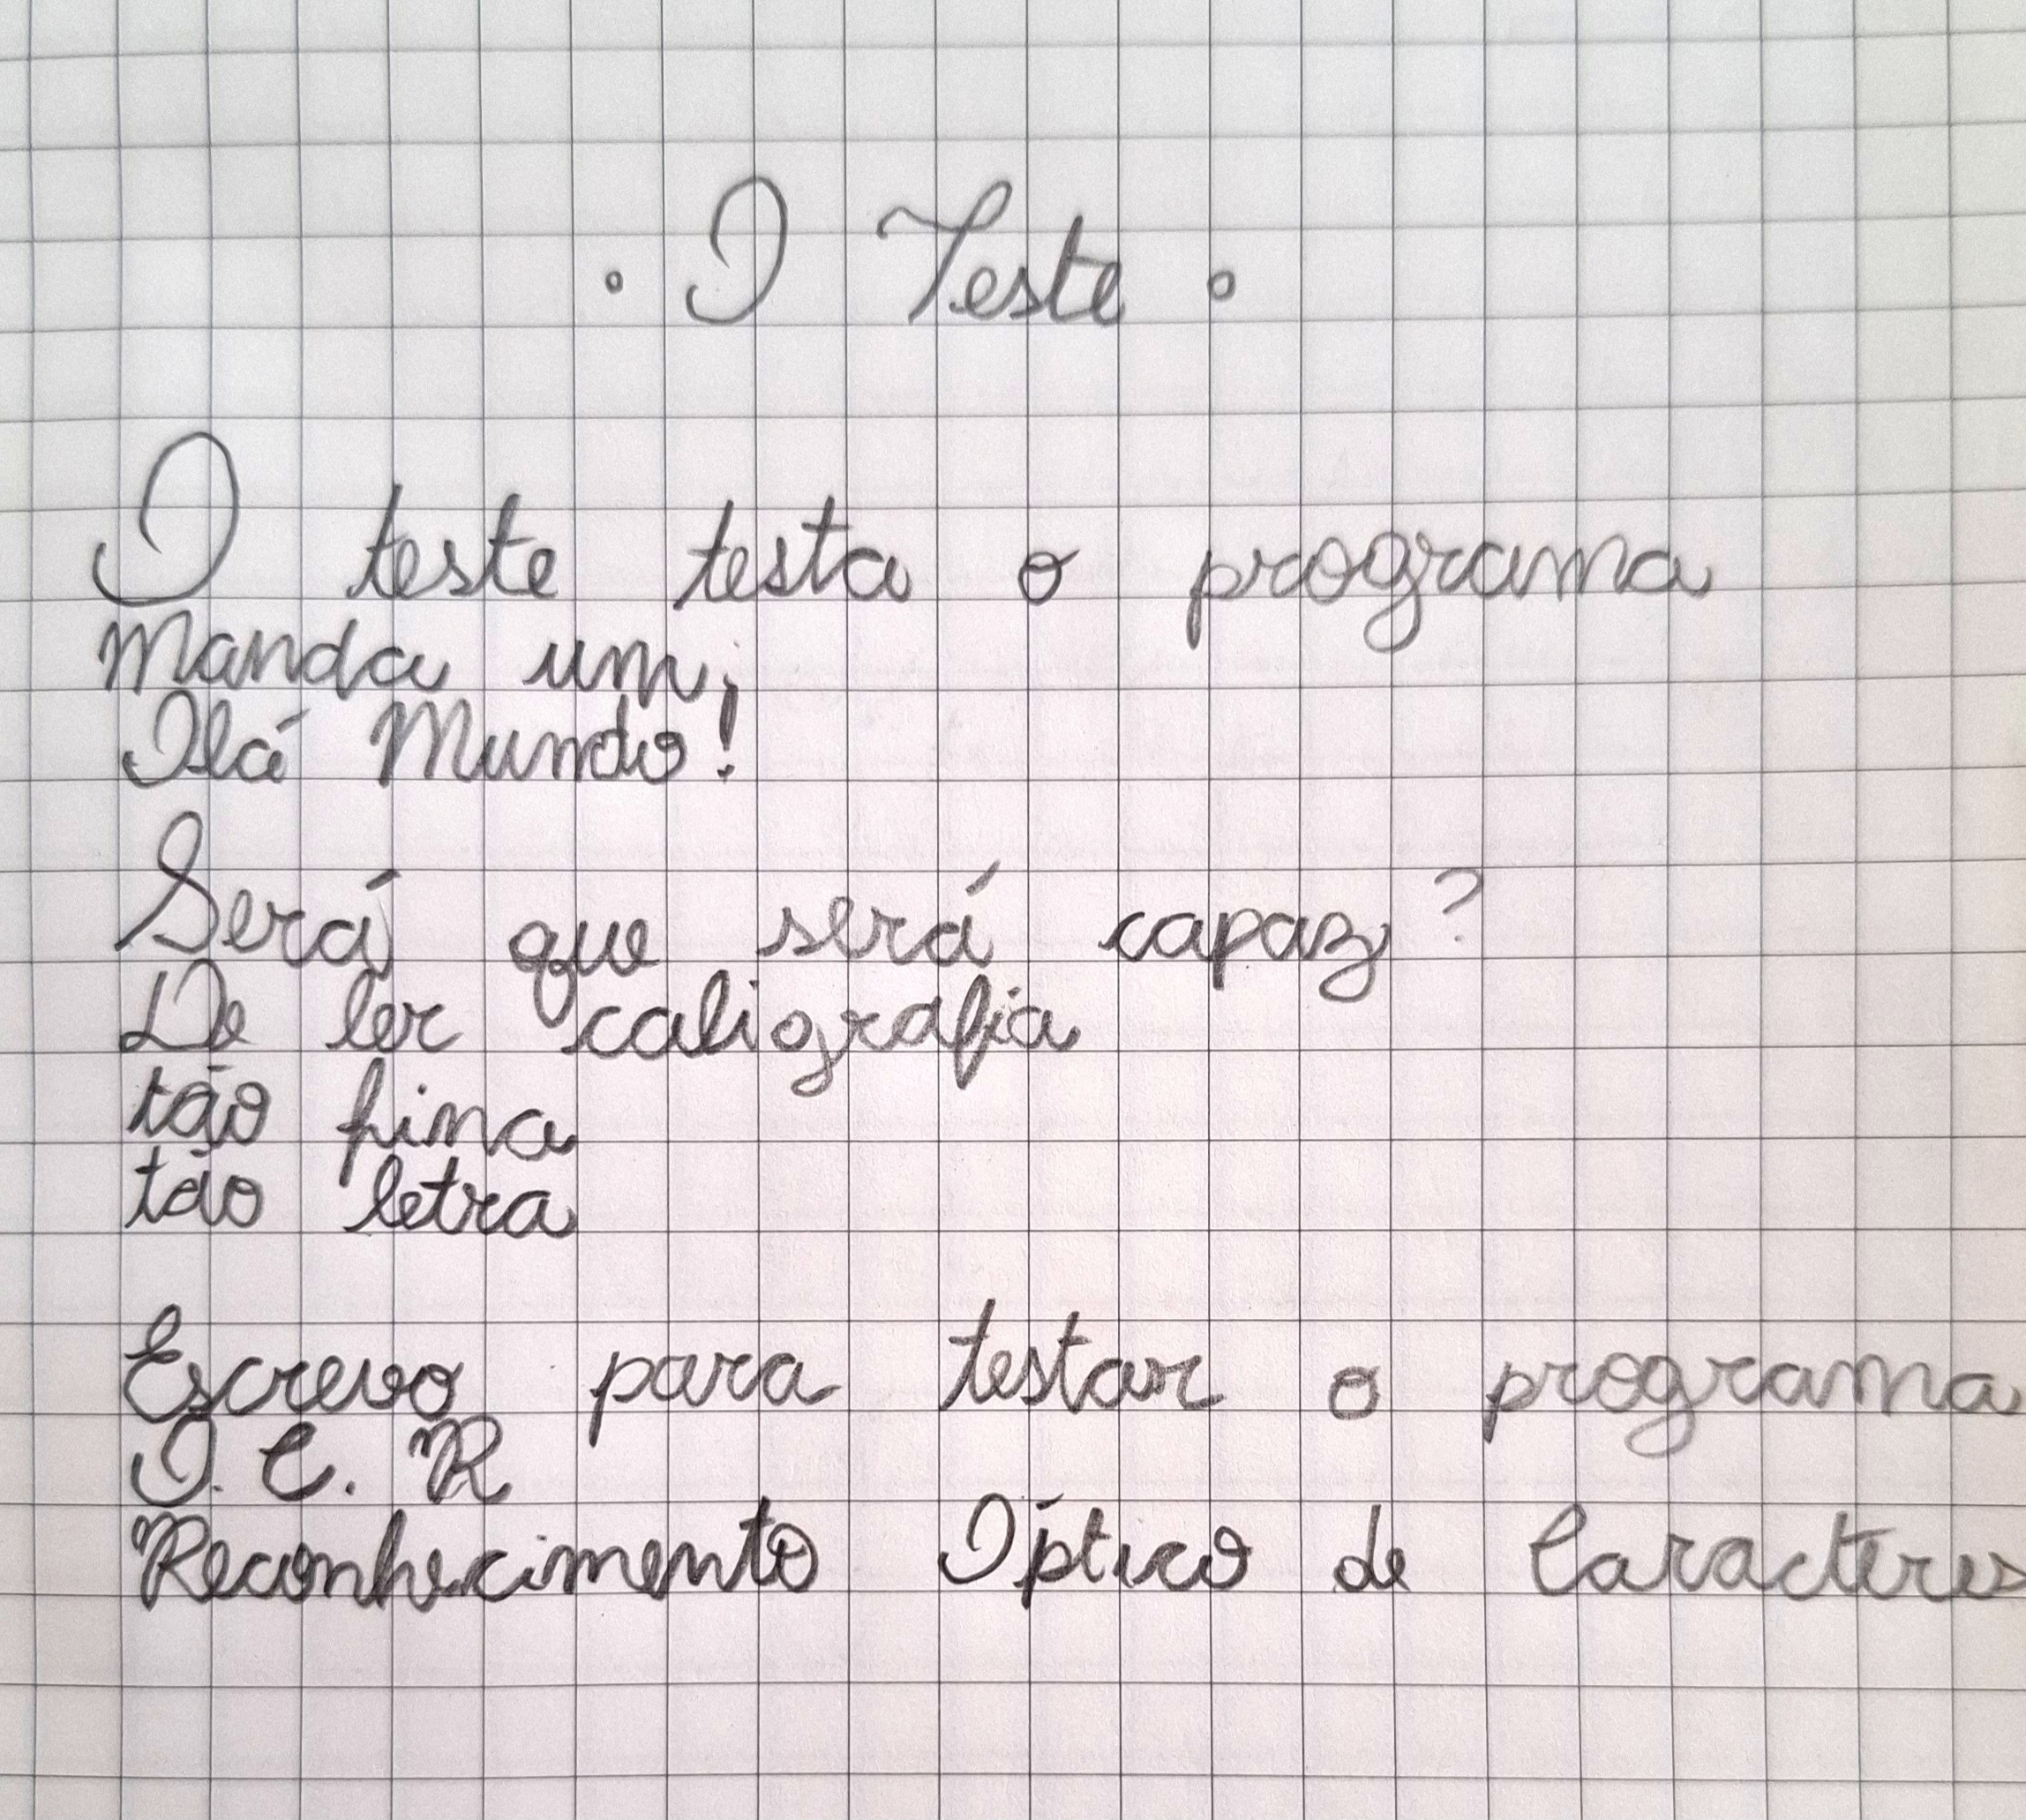 ° O Teste °
O teste testa o programa
Manda um,
Olá Mundo!
Será que será capaz?
De ler caligrafia
tão fina
tão letra
Escrevo para testar o programa
O. C. R
Reconhecimento Óptico de Caracteres